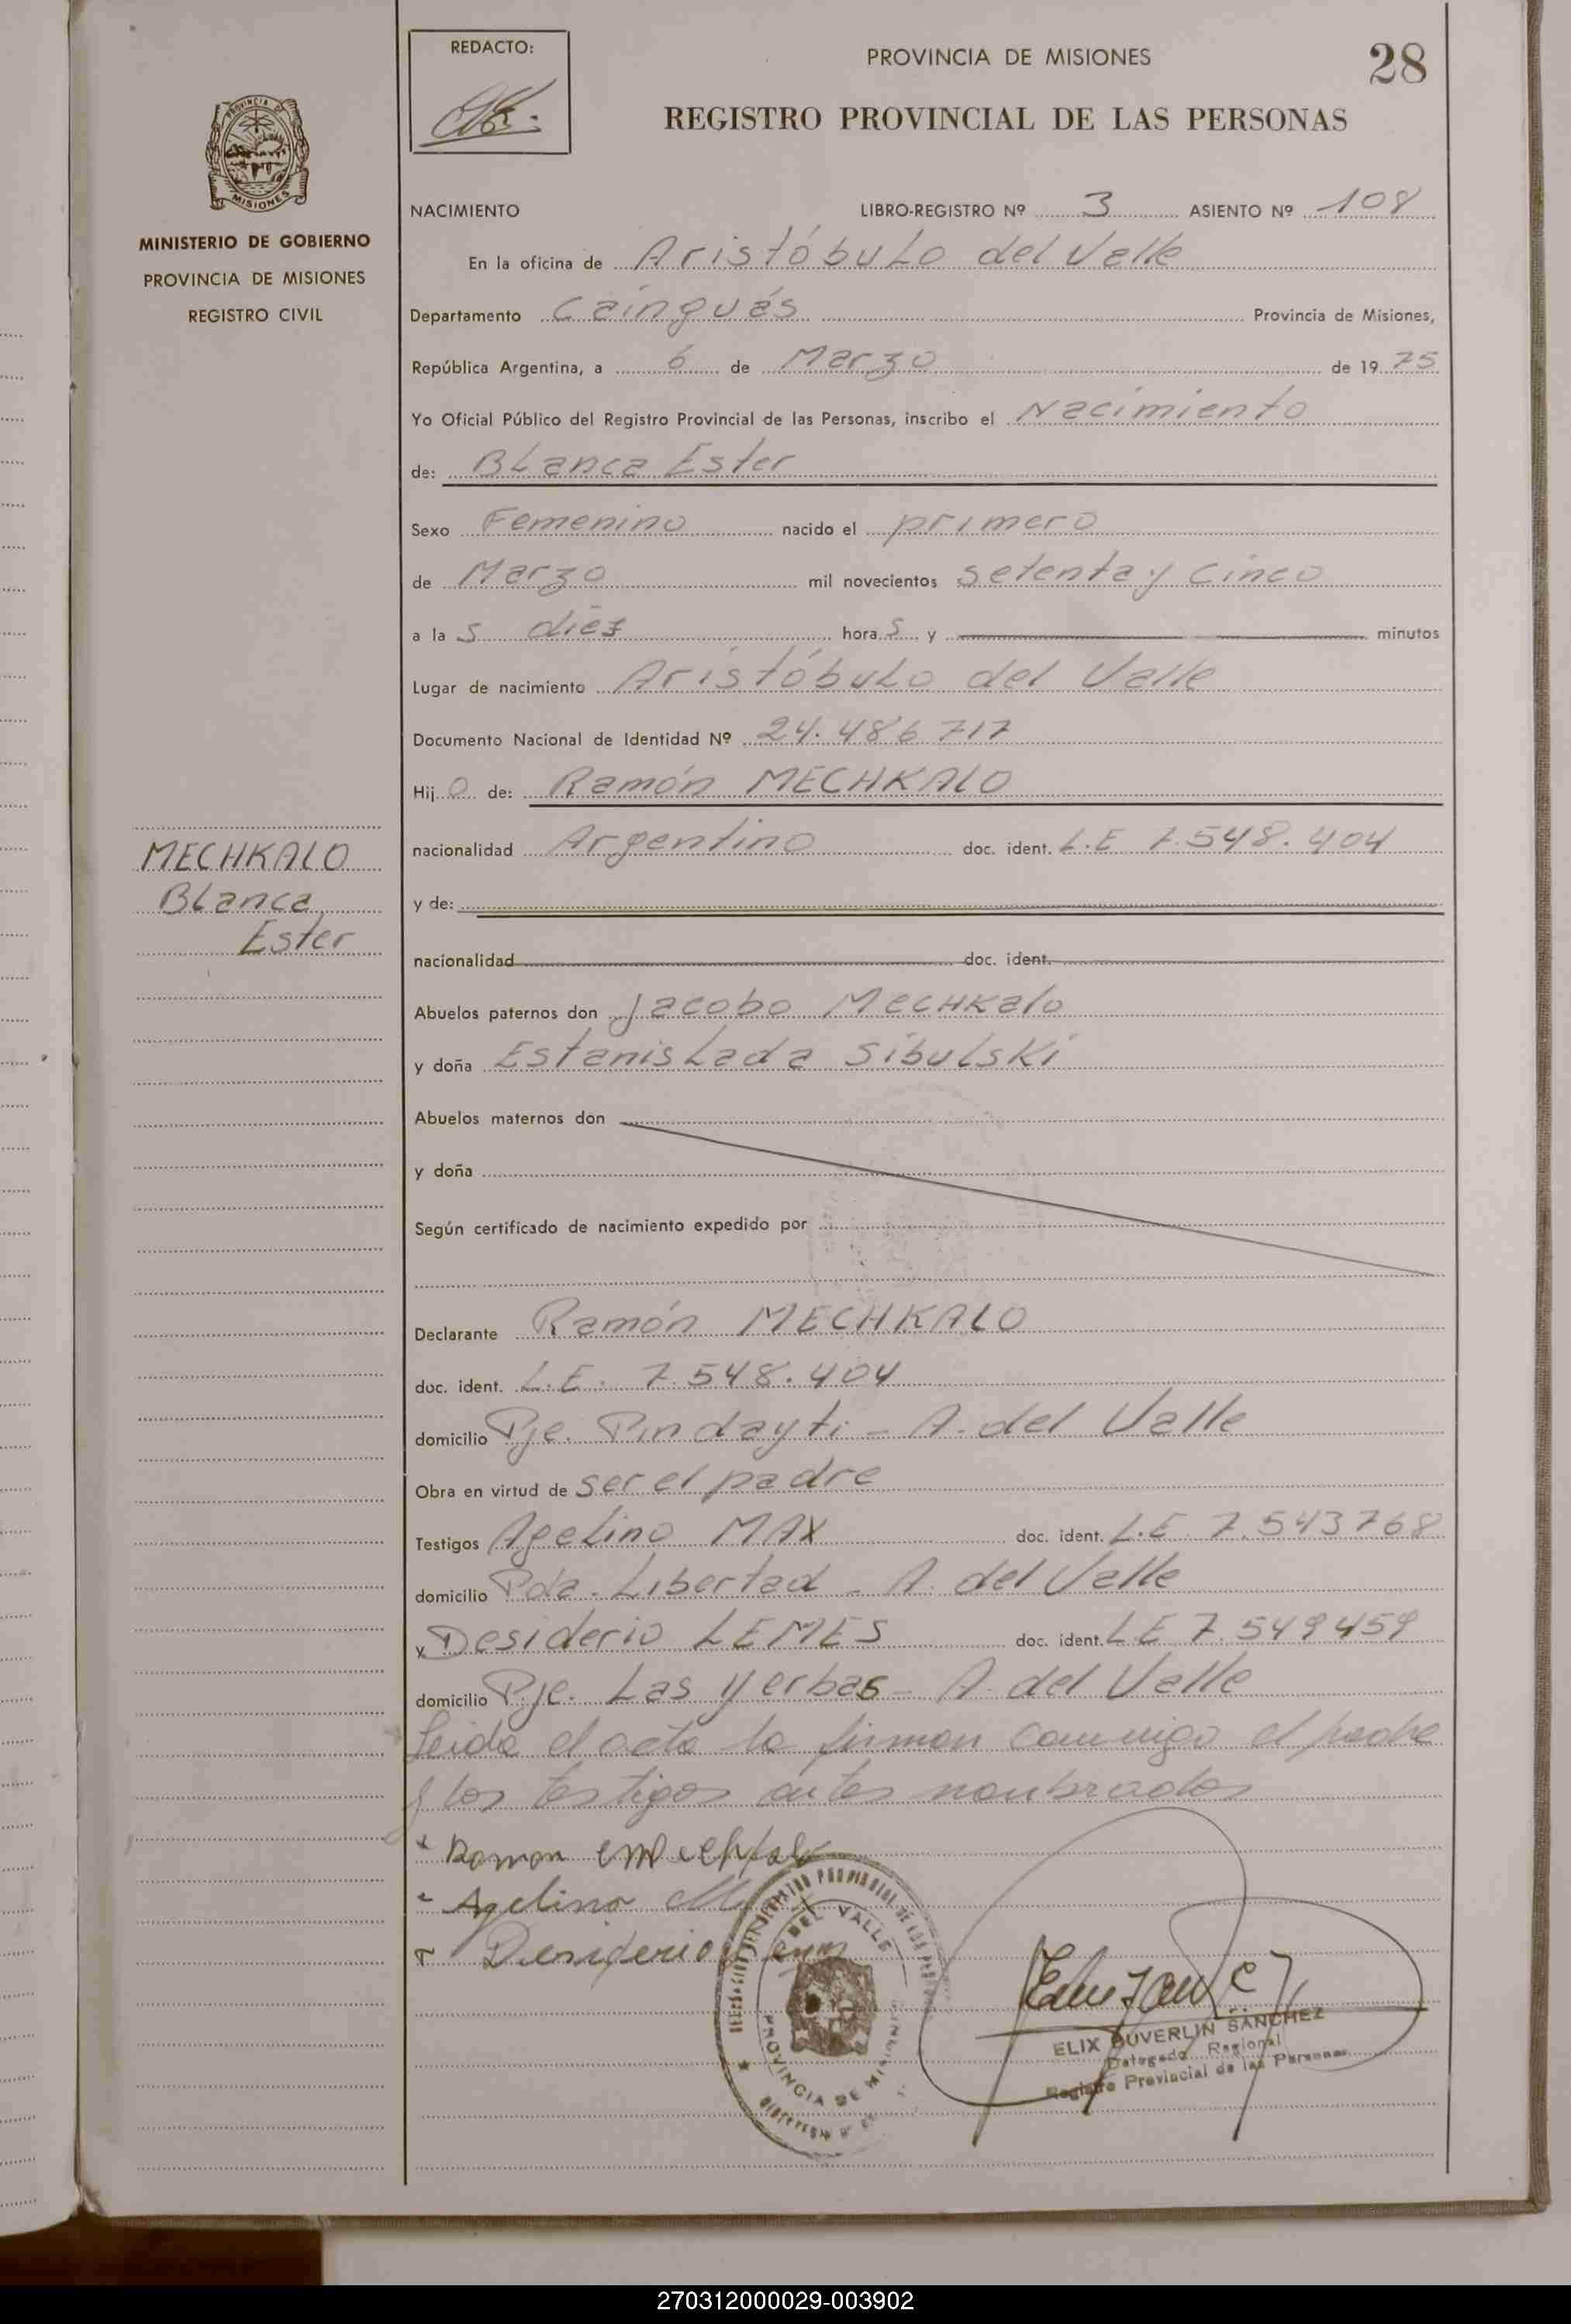 REDACTO:
PROVINCIA DE MISIONES
28
REGISTRO PROVINCIAL DE LAS PERSONAS
PROVINCIA DE
MISIONES
MINISTERIO DE GOBIERNO
PROVINCIA DE MISIONES
REGISTRO CIVIL
NACIMIENTO LIBRO-REGISTRO Nº 3 ASIENTO Nº 108
En la oficina de Aristóbulo del Valle
Departamento Cainguás Provincia de Misiones,
República Argentina, a 6 de Marzo de 1975
Yo Oficial Público del Registro Provincial de las Personas, inscribo el Nacimiento
de: Blanca Ester
Sexo Femenino nacido el primero
de Marzo mil novecientos setenta y cinco
a las diez horas y minutos
Lugar de nacimiento Aristóbulo del Valle
Documento Nacional de Identidad Nº 24.486.717
Hijo de: Ramón MECHKALO
nacionalidad Argentino doc. ident. L.E 7.548.404
y de:
nacionalidad doc. ident.
MECHKALO
Blanca
Ester
Abuelos paternos don Jacobo Mechkalo
y doña Estanislada Sibulski
Abuelos maternos don
y doña
Según certificado de nacimiento expedido por
Declarante Ramón MECHKALO
doc. ident. L.E. 7.548.404
domicilio Pje. Pindayti - A. del Valle
Obra en virtud de ser el padre
Testigos Agelino MAX doc. ident. L.E. 7.543768
domicilio Pda. Libertad - A. del Valle
y Desiderio LEMES doc. ident. L E 7.549459
domicilio Pje. Las Yerbas - A. del Valle
Leida el acta la firman conmigo el padre
y los testigos antes nombrados
Ramon
Agelino
Desiderio
DEL VALLE
PROVINCIA DE MISIONES
ELIX DUVERLIN SANCHEZ
Delegado Regional
Registro Provincial de las Personas
270312000029-003902